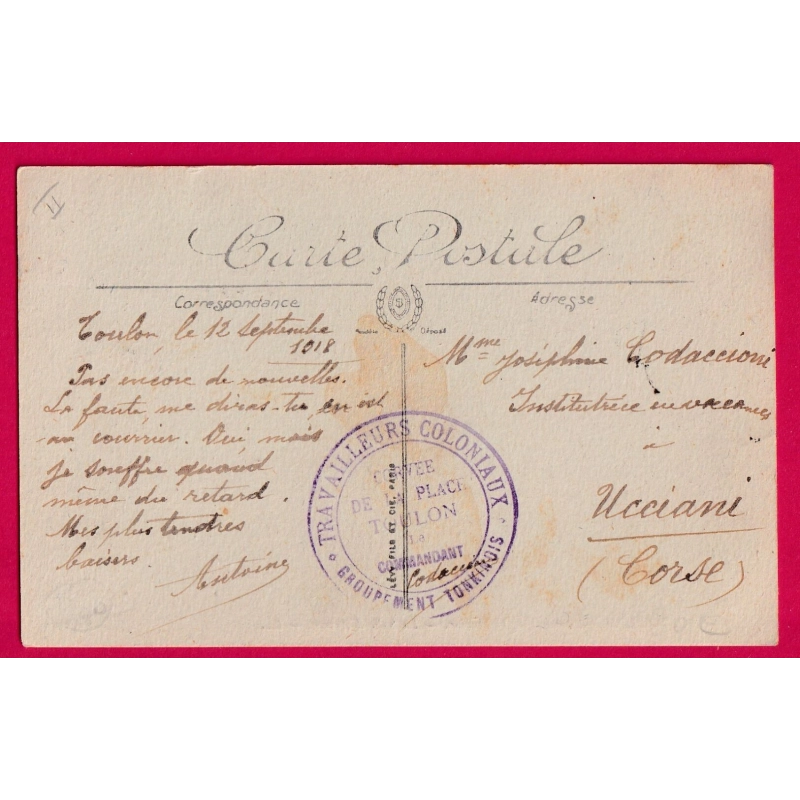 Carte Postale
Correspondance
Adresse
Toulon, le 12 Septembre
1918
Pas encore de nouvelles.
La faute, me diras-tu, en est
au courrier. Oui mais
je souffre quand
même du retard.
Mes plus tendres
baisers.
Antoine
Mme Joséphine Codaccioni
Institutrice en vacances
à
Ucciani
(Corse)
TRAVAILLEURS COLONIAUX
CORVEE
DE LA PLACE
TOULON
Le
COMMANDANT
Codaccioni
GROUPEMENT TONKINOIS
LÉVY FILS ET CIE, PARIS